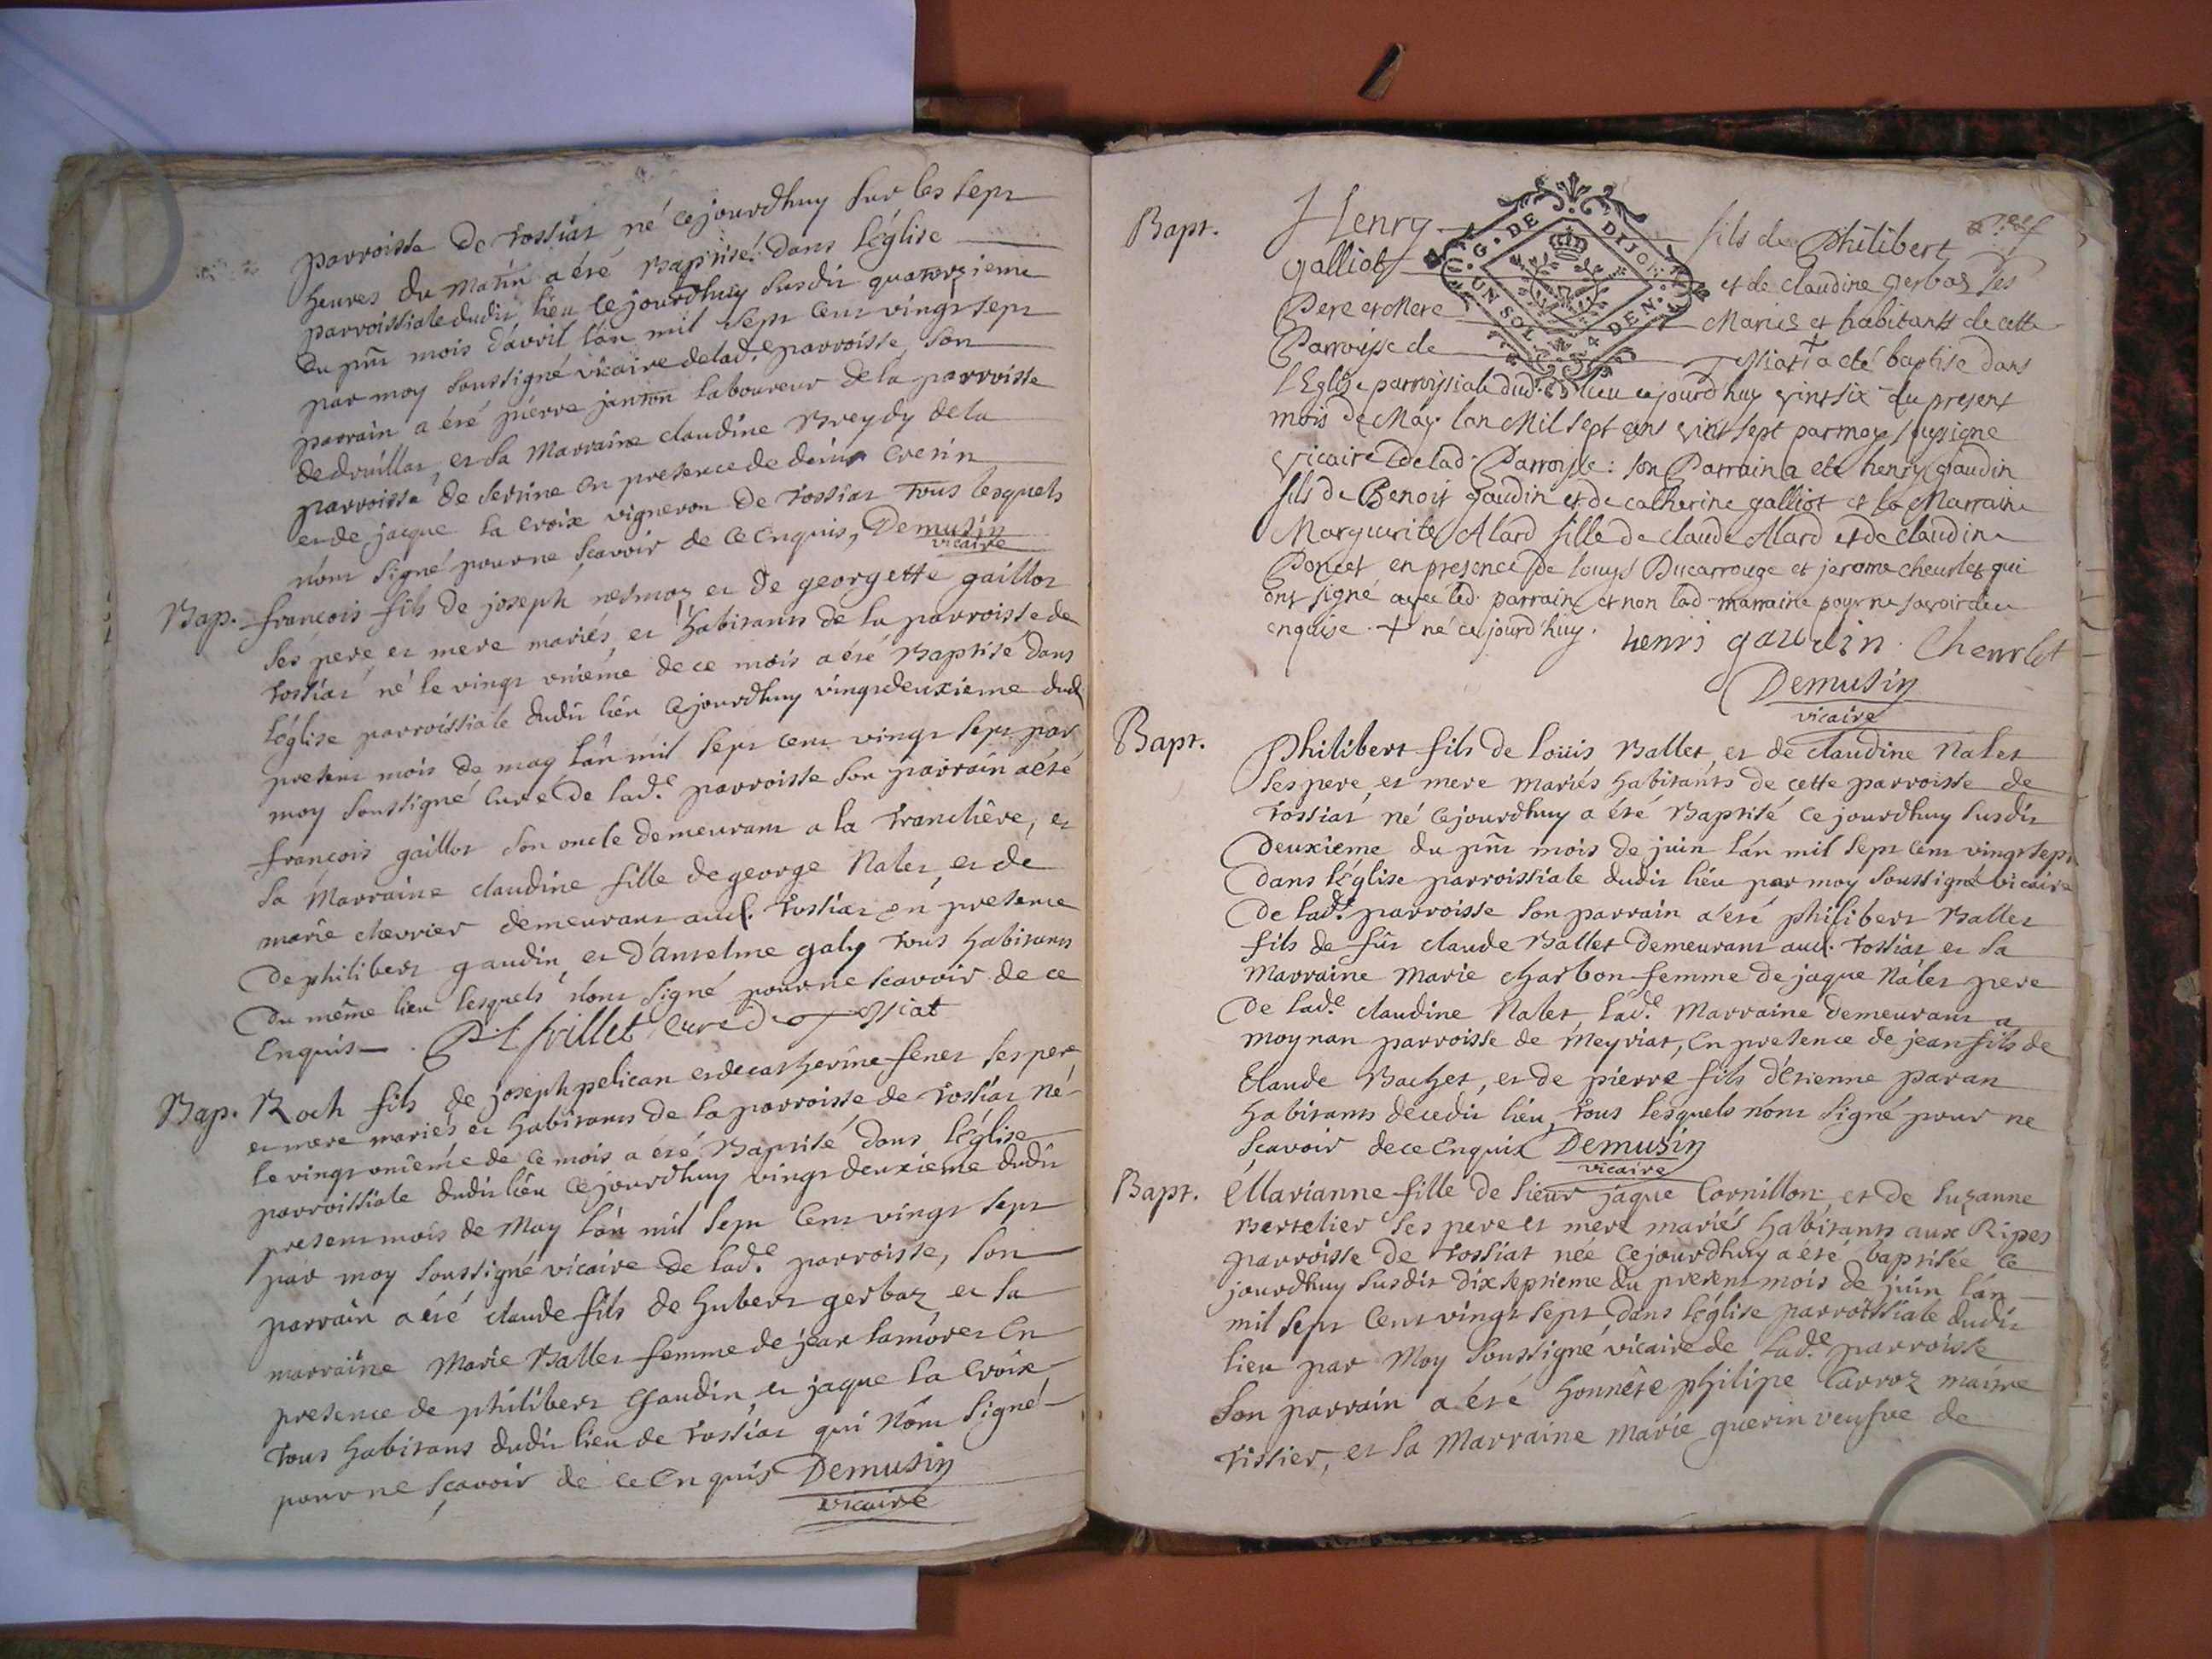 parroisse de tossiat né cejourdhuy sur les sept
heures du matin a été Baptisé dans léglise
parroissiale dudit lieu cejourdhuy susdit quatorzieme
du pnt mois d'avril l'an mil sept cent vingt sept
par moy soussigné vicaire delad.e parroisse, son
parrain a été pierre janton laboureur de la parroisse
de druillat, et sa Marraine claudine Breydy dela
parroisse de serrine en presence de denis
et de jacque la croix vigneron de tossiat tous lesquels
n'ont signé pour ne sçavoir de ce enquis, Demusin
vicaire
Bap. françois fils de joseph nesmoz et de georgette gaillot
ses pere et mere mariés, et habitants de la parroisse de
tossiat né le vingt uniéme de ce mois a été Baptisé dans
l'église parroissiale dudit lieu cejourdhuy vingtdeuxieme dud.
present mois de may l'an mil sept cent vingt sept par
moy soussigné curé de lad.e parroisse son parrain a été
françois gaillot son oncle demeurant a la tranchêre, et
sa Marraine claudine fille de george Nalet, et de
marie chevrier demeurant aud. tossiat en presence
de philibert gaudin et d'anselme galy tous habitants
Du même lieu lesquels n'ont signé pour ne scavoir de ce
Enquis frillet curé de tossiat
Bap. Roch fils de joseph pelican et de catherine fenet ses pere
et mere mariés et habitants de la parroisse de tossiat né
le vingt uniéme de ce mois a été Baptisé dans l'église
parroissiale dudit lieu cejourdhuy vingt deuxieme dudit
present mois de May l'an mil sept cent vingt sept
par moy soussigné vicaire de lad.e parroisse, son
parrain a été claude fils de hubert gerbaz et sa
marraine Marie Ballet femme de jean lamôret En
presence de philibert Gaudin, et jaque la croix
tous habitans dudit lieu de tossiat qui n'ont signé
pour ne sçavoir de ce Enquis Demusin
vicaire
Bapt. Henry fils de Philibert
galliot et de claudine gerbaz ses
Pere et Mere Mariés et habitants de cette
Parroisse de Tossiat + a eté baptise dans
l'Eglise parroissiale dud. lieu cejourd'huy vint six du present
mois de May. lan Mil sept cens vint sept par moy soussigne
Vicaire de lad. Parroisse: son Parrain a ete henry gaudin
fils de Benoit gaudin et de catherine galliot et la Marraine
Marguerite Alard fille de claude Alard et de claudine
Poncet en presence de louys Ducarrouge et jerome cheurlet qui
ont signé avec led. parrain et non lad. marraine pour ne savoir de ce
enquise. + né cejourd'huy. henri gaudin. Cheurlet
Demusin
vicaire
Bapt. Philibert fils de loüis Ballet, et de claudine Nalet
ses pere et mere mariés habitants de cette parroisse de
tossiat né cejourdhuy a été Baptisé ce jourdhuy susdit
Deuxieme du pnt mois de juin l'an mil sept cent vingt sept
dans l'église parroissiale dudit lieu par moy soussigné vicaire
de lad.e parroisse son parrain a été philibert Ballet
fils de fût claude Ballet demeurant aud. tossiat et sa
marraine Marie charbon femme de jaque Nalet pere
de lad.e claudine Nalet lad.e Marraine demeurant a
moynan parroisse de Meyriat, En presence de jean fils de
Claude Bachet, et de pierre fils d'étienne paran
habitants decedit lieu, tous lesquels n'ont signé pour ne
sçavoir dece Enquis Demusin
vicaire
Bapt. Marianne fille de sieur jaque Cornillon et de suzanne
Bertelier ses pere et mere mariés habitants aux Ripes
parroisse de tossiat née cejourdhuy a été baptisée ce
jourdhuy susdit dixseptieme du present mois de juin l'an
mil sept cent vingt sept, dans l'église parroissiale dudit
lieu par Moy soussigné vicaire de lad.e parroisse
son parrain a été honnête philipe Carroz maitre
tissier, et sa Marraine Marie guerin veufve de
G. DE DIJON
UN SOL 4 DEN.